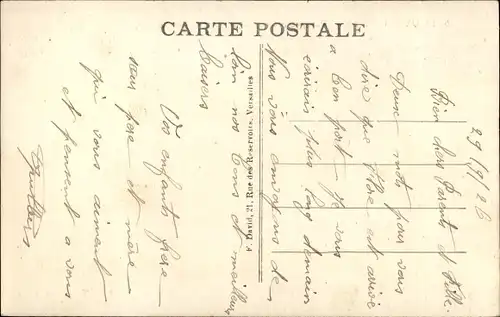 CARTE POSTALE
29/9/26
Bien chers Parents et Fille
Deux mots pour vous
dire que Flore est arrivée
a bon port je vous
écrirais plus long demain
Nous vous envoyons de
loin nos bons et meilleurs
baisers
Vos enfants frère
sœur père et mère
qui vous aiment
et pensent a vous
David, 21, Rue des Réservoirs, Versailles